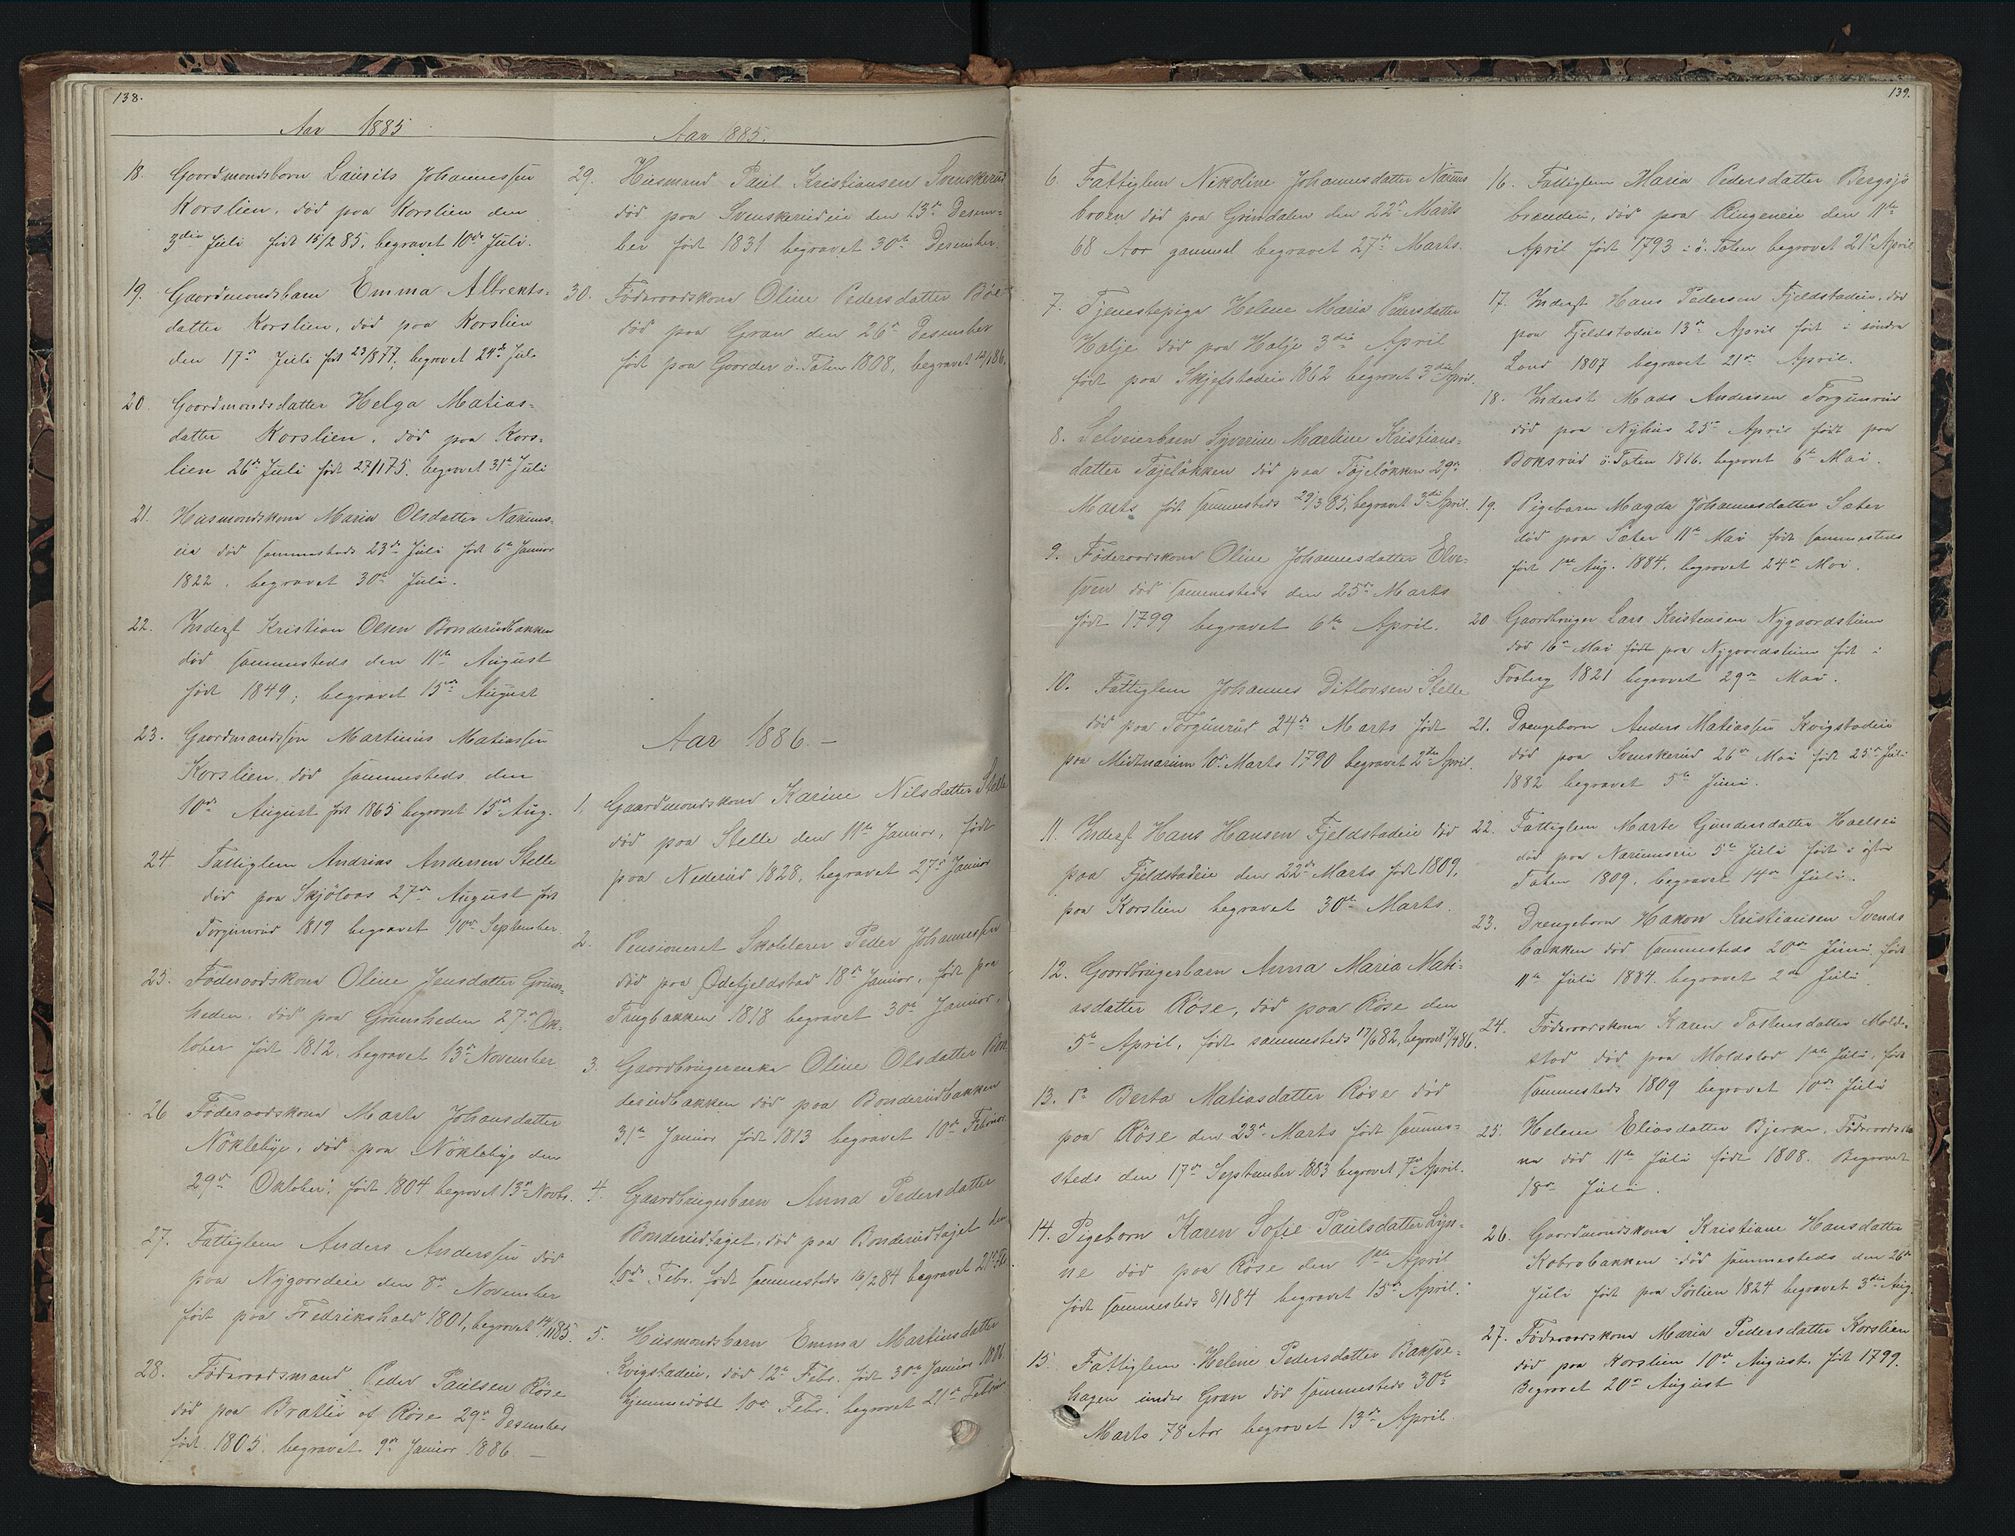 138.
Aar 1885
18. Gaardmandsbarn Laurits Johannessen
Korslien, død paa Korslien den
3die Juli født 15/2 85, begravet 10de Juli.
19. Gaardmandsbarn Emma Albrekts-
datter Korslien, død paa Korslien
den 17de Juli født 23/1 77, begravet 24de Juli
20. Gaardmandsdatter Helga Matias-
datter Korslien, død paa Kors-
lien 26de Juli født 27/1 75, begravet 31te Juli
21. Husmandskona Maria Olsdatter Narums-
eia død sammesteds 23de Juli født 6te Januar
1822, begravet 30te Juli.
22. Inderst Kristian Olsen Bonderudbakken
død sammesteds den 11te August
født 1849; begravet 15de August
23. Gaardmandssøn Martinius Matiassen
Korslien, død sammesteds den
10de August født 1865 begravet 15de Aug.
24 Fattiglem Andrias Andersen Stelle
død paa Skjølaas 27de August født
Torgunrud 1819 begravet 10de September.
25. Føderaadskona Oline Jensdatter Grøns-
heden, død paa Grønsheden 27de Ok-
tober født 1812, begravet 13de November
26 Føderaadskona Marte Johansdatter
Nøklebye, død paa Nøklebye den
29de Oktober, født 1804 begravet 13de Novbr.
27. Fattiglem Anders Anderssen død
paa Nygaardeie den 8de November
født paa Fredrikshald 1801, begravet 14/11 85.
28. Føderaadsmand Peder Paulsen Røse
død paa Bratlie af Røse 29de Desember
født 1805. begravet 9de Januar 1886. —
Aar 1885.
29. Husmand Paul Kristiansen Svenskerud
død paa Svenskerudeie den 13de Desem-
ber født 1831 begravet 30te Desember.
30. Føderaadskona Oline Pedersdatter Bøe
død paa Gran den 26de Desember
født paa Gaarder ö. Toten 1808, begravet 12/1 86.
Aar 1886. —
1. Gaardmandskona Karine Nilsdatter Stelle
død paa Stelle den 11te Januar, født
paa Nederud 1828, begravet 27de Januar
2. Pensioneret Skolelærer Peder Johannessen
død paa Ødefjeldstad 18de Januar, født paa
Trugbakken 1818 begravet 30te Januar,
3. Gaardbrugerenke Oline Olsdatter Bon-
derudbakken død paa Bonderudbakken
31te Januar født 1813 begravet 10de Februar.
4. Gaardbrugerbarn Anna Pedersdatter
Bonderudhaget, død paa Bonderudhaget den
10de Febr. født sammesteds 16/2 84 begravet 21de Fe.
5. Husmandsbarn Emma Martinsdatter
Kvigstadeie, død 12te Febr. født 30te Januar 1886
hjemmedøbt 10de Febr. begravet 21de Februar
139.
6. Fattiglem Nikoline Johannesdatter Narums
braaen død paa Grindalen den 22de Marts
68 Aar gammel begravet 27de Marts.
7. Tjenestepiga Helene Maria Pedersdatter
Holje død paa Holje 3die April
født paa Skjefstadeie 1862 begravet 3die April.
8. Selveierbarn Syverine Martine Kristians-
datter Tøjeløkken død paa Tøjeløkken 29de
Marts født sammesteds 29/3 85, begravet 3die April.
9. Føderaadskona Oline Johannesdatter Elve-
sven død sammesteds den 25de Marts
født 1799 begravet 6te April.
10. Fattiglem Johannes Ditlovsen Stelle
død paa Torgunrud 24de Marts født
paa Midtnarum 10de Marts 1790 begravet 2den April.
11. Inderst Hans Hansen Fjeldstadeie død
paa Fjeldstadeie den 22de Marts født 1809,
paa Korslien begravet 30te Marts.
12. Gaardbrugerbarn Anna Maria Mati-
asdatter Røse, død paa Røse den
5te April, født sammesteds 17/6 82, begravet 7/4 86.
13. do Berta Matiasdatter Røse død
paa Røse den 23de Marts født sammes-
steds den 17de September 1883 begravet 7de April.
14. Pigebarn Karen Sofie Paulsdatter Lyn-
ne død paa Røse den 1ste April
født sammesteds 8/1 84 begravet 15de April.
15. Fattiglem Helene Pedersdatter Bakpe-
hagen under Gran død sammesteds 30te
Marts 78 Aar begravet 13de April.
16. Fattiglem Maria Pedersdatter Bergsjø
brænden, død paa Ringeneie den 11te
April født 1793 i ö. Toten begravet 21de April
17. Inderst Hans Pedersen Fjeldstadeie, død
paa Fjeldstadeie 13de April født i søndre
Land 1807 begravet 21de April.
18. Inderst Mads Andersen Torgunrud
død paa Nyhus 25de April født paa
Boksrud ö. Toten 1816. begravet 6te Mai.
19. Pigebarn Magda Johannesdatter Sæter
død paa Sæter 11te Mai født sammesteds
født 1ste Aug. 1884, begravet 24de Mai.
20 Gaardbruger Lars Kristensen Nygaardsteien
død 16de Mai født paa Nygaardsteien født i
Torberg 1821 begravet 29de Mai.
21. Drengebarn Anders Matiassen Kvigstadeie
død paa Svenskerud 26de Mai født 25de Juli
1882 begravet 5te Juni.
22. Fattiglem Marte Gundersdatter Hoelsei
død paa Narumseie 5te Juli født i østre
Toten 1809. begravet 14de Juli.
23. Drengebarn Hakon Kristiansen Svends
bakken død sammesteds 20de Juni født
11te Juli 1884. begravet 2den Juli.
24. Føderaadskona Karen Tostensdatter Mold-
stad død paa Moldstad 1ste Juli, født
sammesteds 1809 begravet 10de Juli
25. Helene Eliasdatter Bjerke, Føderaadsko
na død 11te Juli født 1808. Begravet
18de Juli.
26. Gaardmandskona Kristiane Hansdatter
Kobrobakken død sammesteds den 26de
Juli født paa Sørlien 1824 begravet 3die Aug.
27. Føderaadskona Maria Pedersdatter Korslien
død paa Korslien 10de August, født 1799.
Begravet 20de August